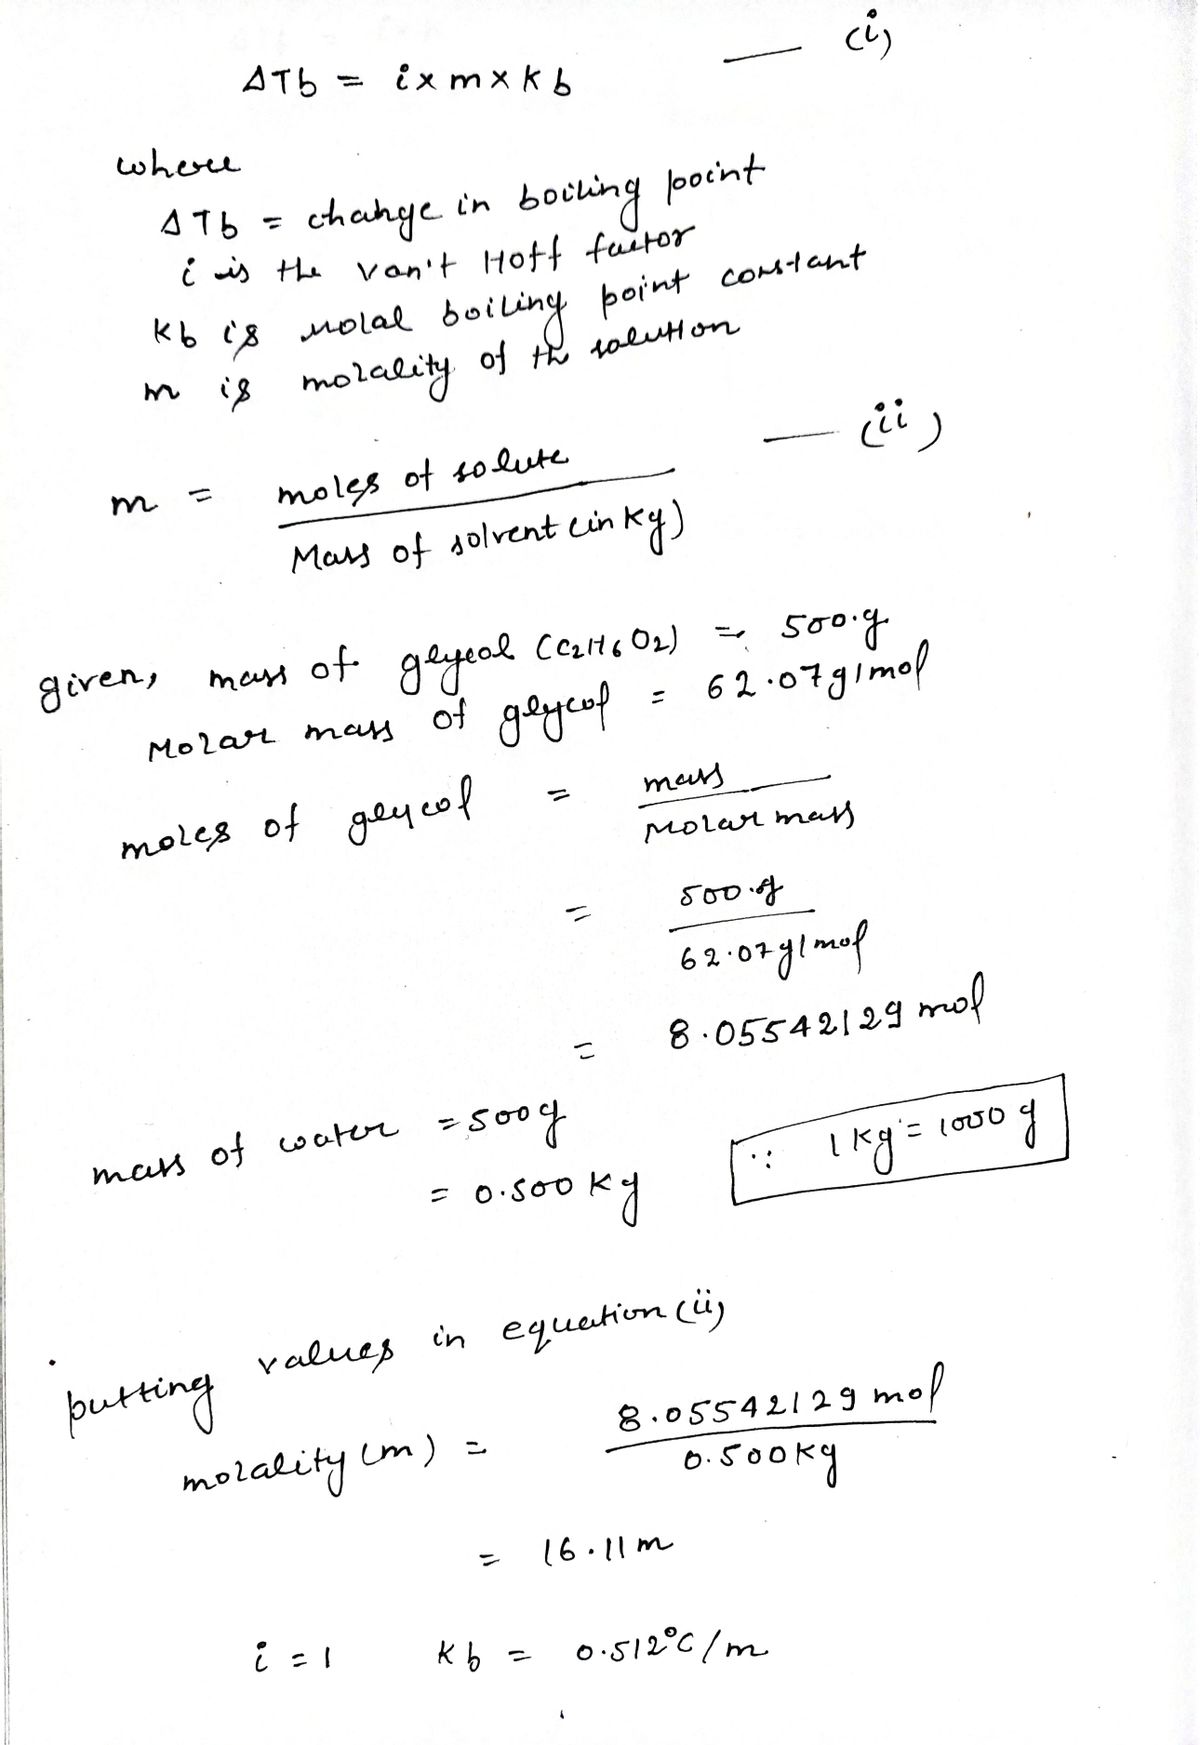 — (i)
ΔTb = i x m x Kb
where
ΔTb = change in boiling point
i is the Van't Hoff factor
Kb is molal boiling point constant
m is molality of the solution
— (ii)
m = moles of solute
Mass of solvent (in Kg)
given, mass of glycol (C2H6O2) = 500.g
Molar mass of glycol = 62.07g/mol
moles of glycol = mass
Molar mass
= 500.g
62.07g/mol
= 8.05542129 mol
mass of water = 500g
= 0.500 Kg
∵ 1Kg = 1000 g
putting values in equation (ii)
molality (m) = 8.05542129 mol
0.500Kg
= 16.11m
i = 1 Kb = 0.512°C/m